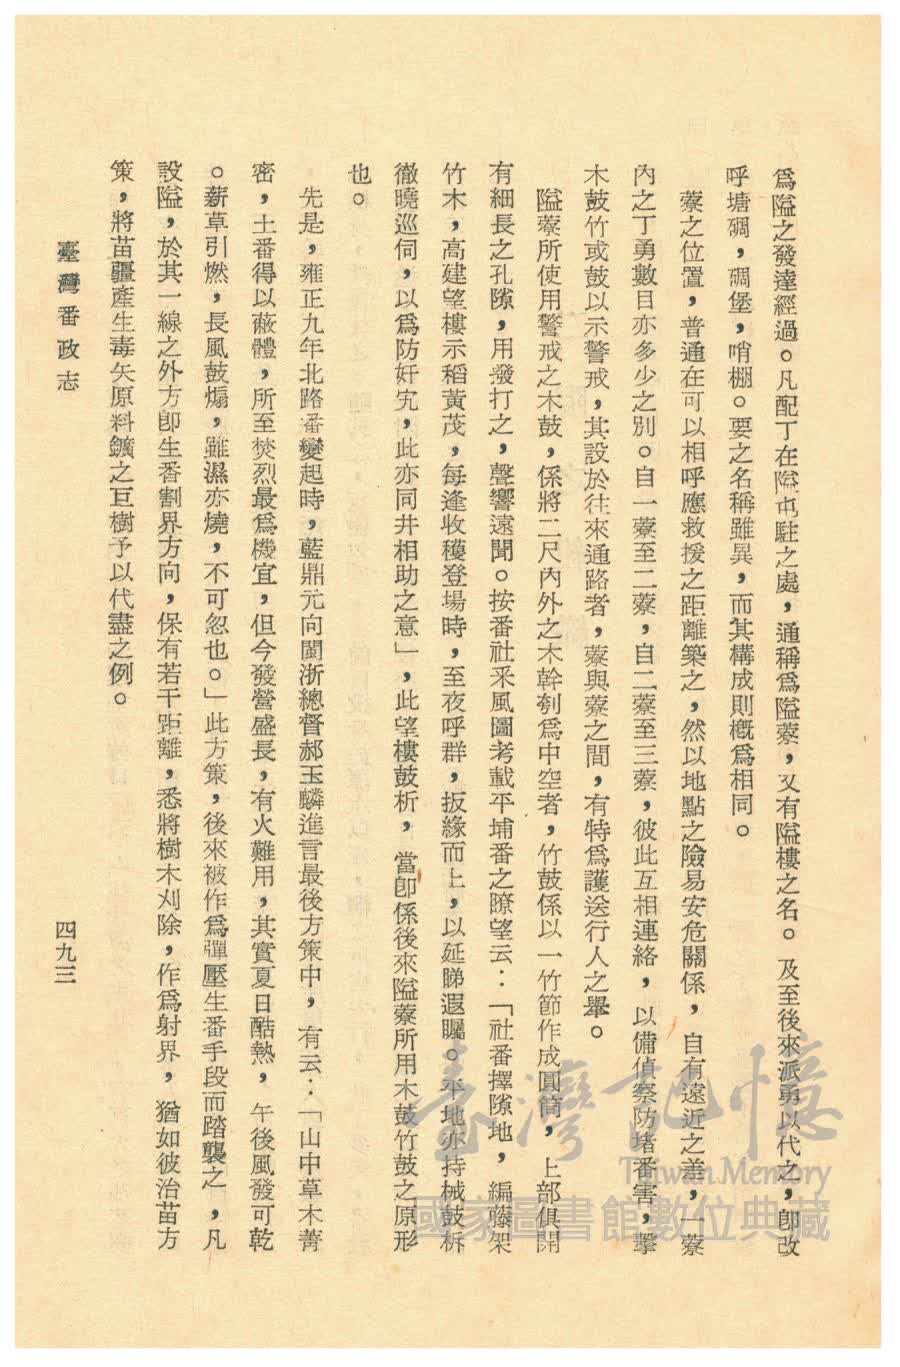 爲隘之發達經過。凡配丁在隘屯駐之處，通稱爲隘藔，又有隘樓之名。及至後來派勇以代之，卽改
呼塘碉，碉堡，哨棚。要之名稱雖異，而其構成則槪爲相同。
藔之位置，普通在可以相呼應救援之距離築之，然以地點之險易安危關係，自有遠近之差，一藔
內之丁勇數目亦多少之別。自一藔至二藔，自二藔至三藔，彼此互相連絡，以備偵察防堵番害，擊
木鼓竹或鼓以示警戒，其設於往來通路者，藔與藔之間，有特爲護送行人之擧。
隘藔所使用警戒之木鼓，係將二尺內外之木幹刳爲中空者，竹鼓係以一竹節作成圓筒，上部俱開
有細長之孔隙，用發打之，聲響遠聞。按番社釆風圖考載平埔番之瞭望云：「社番擇隙地，編藤架
竹木，高建望樓示稻黃茂，每逢收穫登場時，至夜呼群，扳緣而上，以延睇遐矚。平地亦持械鼓柝
徹曉巡伺，以爲防奸宄，此亦同井相助之意」，此望樓鼓析，當卽係後來隘藔所用木鼓竹鼓之原形
也。
先是，雍正九年北路番變起時，藍鼎元向閩浙總督郝玉麟進言最後方策中，有云：「山中草木菁
密，土番得以蔽體，所至焚烈最爲機宜，但今發營盛長，有火難用，其實夏日酷熱，午後風發可乾
。薪草引燃，長風鼓煽，雖濕亦燒，不可忽也。」此方策，後來被作爲彈壓生番手段而踏襲之，凡
設隘，於其一線之外方卽生番割界方向，保有若干距離，悉將樹木刈除，作爲射界，猶如彼治苗方
策，將苗疆產生毒矢原料鑛之巨樹予以代盡之例。
臺灣番政志
四九三
臺灣記憶
Taiwan Memory
國家圖書館數位典藏